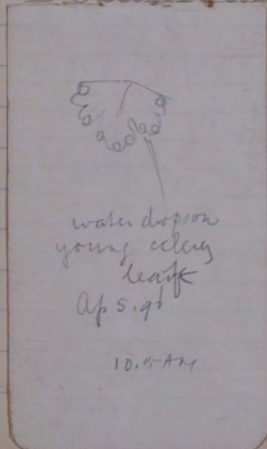 water drops on
young celery
leaf
Ap 5.96
10.15 AM